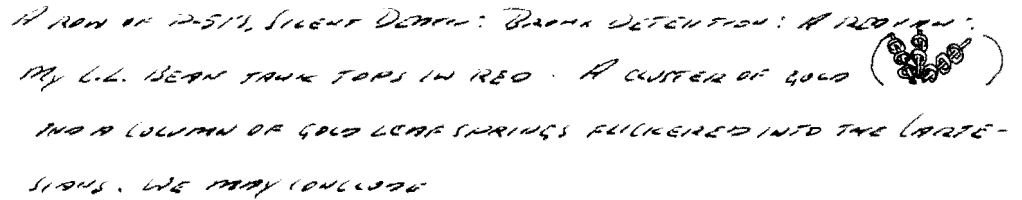 A ROW OF P-51'S, SILENT DEATH: BRONX DETENTION: A REDMAN:
MY L.L. BEAN TANK TOPS IN RED. A CLUSTER OF GOLD ( )
AND A COLUMN OF GOLD LEAF SPRINGS FLICKERED INTO THE CARTE-
SIANS. WE MAY CONCLUDE